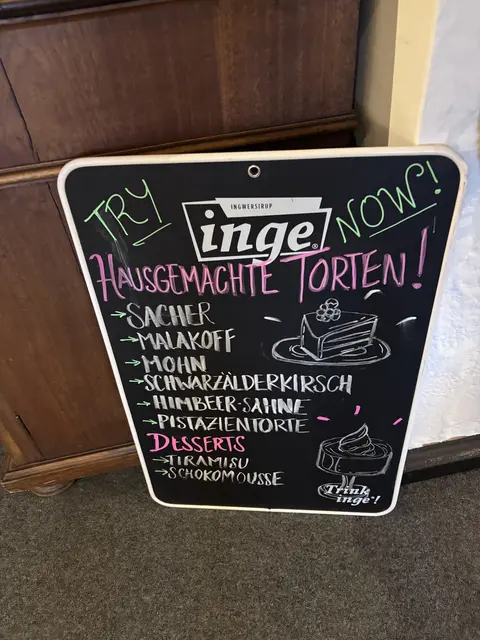 TRY
NOW!
INGWERSIRUP
inge®
HAUSGEMACHTE TORTEN!
→SACHER
→MALAKOFF
→MOHN
→SCHWARZÄLDERKIRSCH
→HIMBEER-SAHNE
→PISTAZIENTORTE
DESSERTS
→TIRAMISU
→SCHOKOMOUSSE
Trink
inge®!